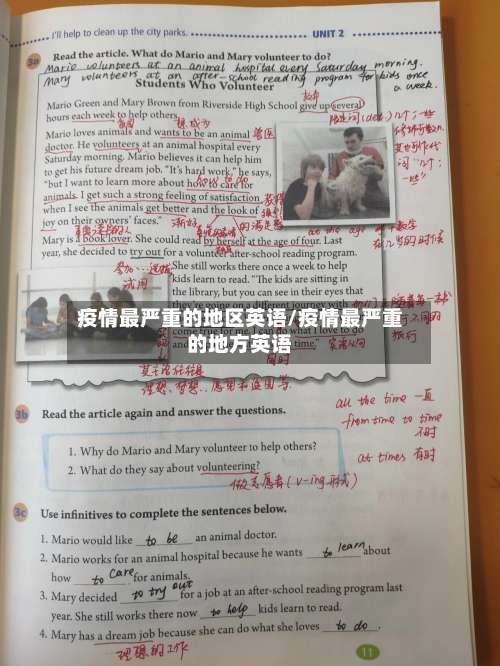 I'll help to clean up the city parks.
UNIT 2
3a
Read the article. What do Mario and Mary volunteer to do?
Mario volunteers at an animal hospital every Saturday morning.
Mary volunteers at an after-school reading program for kids once a week.
Students Who Volunteer
Mario Green and Mary Brown from Riverside High School give up several
hours each week to help others.
Mario loves animals and wants to be an animal 兽医
doctor. He volunteers at an animal hospital every
Saturday morning. Mario believes it can help him
to get his future dream job. "It's hard work," he says,
"but I want to learn more about how to care for
animals. I get such a strong feeling of satisfaction
when I see the animals get better and the look of
joy on their owners' faces."
at the age of + 数字
在几岁的时候
Mary is a book lover. She could read by herself at the age of four. Last
year, she decided to try out for a volunteer after-school reading program.
She still works there once a week to help
kids learn to read. "The kids are sitting in
the library, but you can see in their eyes that
they're going on a different journey with
come true for me. I can do what I love to do
and
time."
同时
疫情最严重的地区英语/疫情最严重
的地方英语
all the time 一直
from time to time
不时
at times 有时
3b
Read the article again and answer the questions.
1. Why do Mario and Mary volunteer to help others?
2. What do they say about volunteering?
做志愿者(v-ing 形式)
3c
Use infinitives to complete the sentences below.
1. Mario would like to be an animal doctor.
2. Mario works for an animal hospital because he wants to learn about
how to care for animals.
3. Mary decided to try out for a job at an after-school reading program last
year. She still works there now to help kids learn to read.
4. Mary has a dream job because she can do what she loves to do.
理想的工作
11